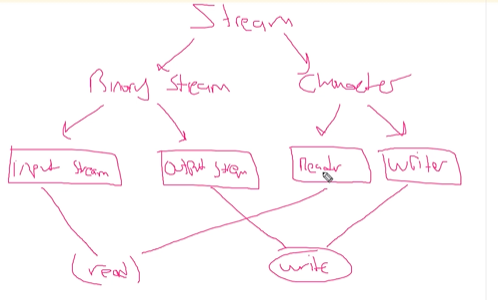 Stream
Binary Stream
Character
Input Stream
Output Stream
Reader
Writer
(read)
write